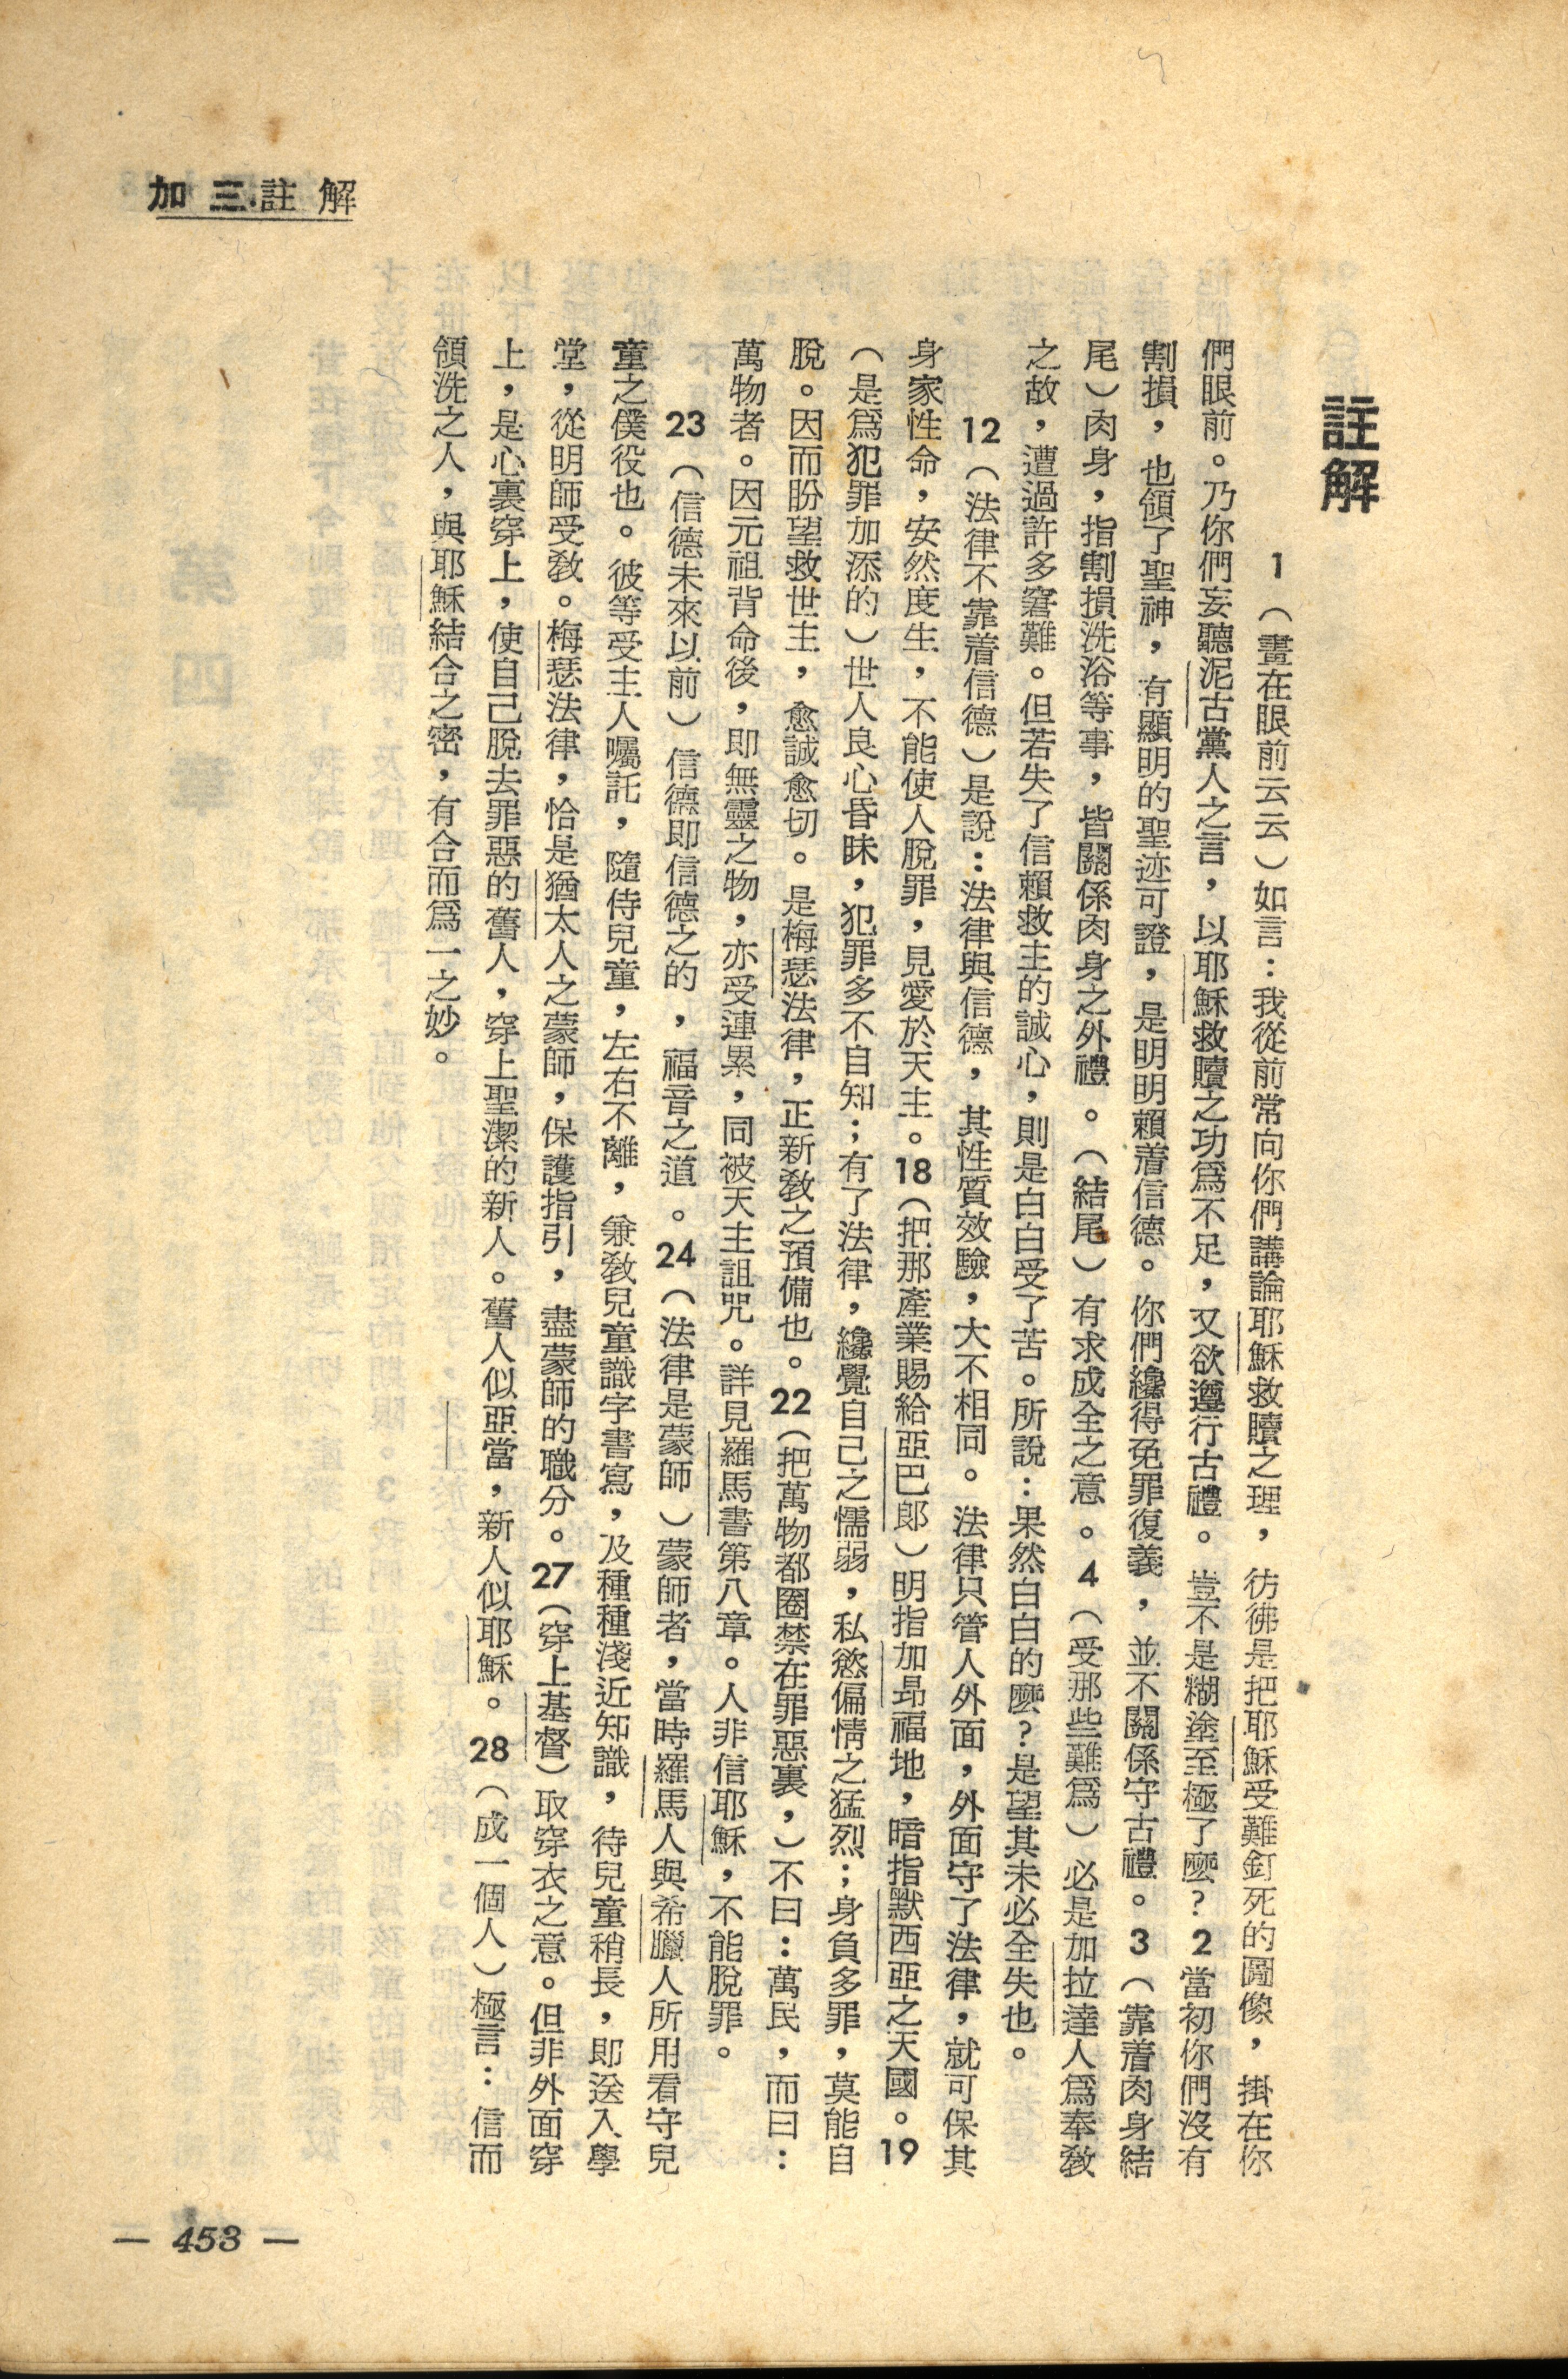 加三.註解
註解
1（畫在眼前云云）如言：我從前常向你們講論耶穌救贖之理，彷彿是把耶穌受難釘死的圖像，掛在你
們眼前。乃你們妄聽泥古黨人之言，以耶穌救贖之功爲不足，又欲遵行古禮。豈不是糊塗至極了麼？2當初你們沒有
割損，也領了聖神，有顯明的聖迹可證，是明明賴着信德。你們纔得免罪復義，並不關係守古禮。3（靠着肉身結
尾）肉身，指割損洗浴等事，皆關係肉身之外禮。（結尾）有求成全之意。4（受那些難爲）必是加拉達人爲奉敎
之故，遭過許多窘難。但若失了信賴救主的誠心，則是白白受了苦。所說：果然白白的麼？是望其未必全失也。
12（法律不靠着信德）是說：法律與信德，其性質效驗，大不相同。法律只管人外面，外面守了法律，就可保其
身家性命，安然度生，不能使人脫罪，見愛於天主。18（把那產業賜給亞巴郎）明指加昻福地，暗指默西亞之天國。19
（是爲犯罪加添的）世人良心昏昧，犯罪多不自知；有了法律，纔覺自己之懦弱，私慾偏情之猛烈；身負多罪，莫能自
脫。因而盼望救世主，愈誠愈切。是梅瑟法律，正新敎之預備也。22（把萬物都圈禁在罪惡裏，）不曰：萬民，而曰：
萬物者。因元祖背命後，即無靈之物，亦受連累，同被天主詛咒。詳見羅馬書第八章。人非信耶穌，不能脫罪。
23（信德未來以前）信德即信德之的，福音之道。24（法律是蒙師）蒙師者，當時羅馬人與希臘人所用看守兒
童之僕役也。彼等受主人囑託，隨侍兒童，左右不離，兼敎兒童識字書寫，及種種淺近知識，待兒童稍長，即送入學
堂，從明師受敎。梅瑟法律，恰是猶太人之蒙師，保護指引，盡蒙師的職分。27（穿上基督）取穿衣之意。但非外面穿
上，是心裏穿上，使自己脫去罪惡的舊人，穿上聖潔的新人。舊人似亞當，新人似耶穌。28（成一個人）極言：信而
領洗之人，與耶穌結合之密，有合而爲一之妙。
— 453 —